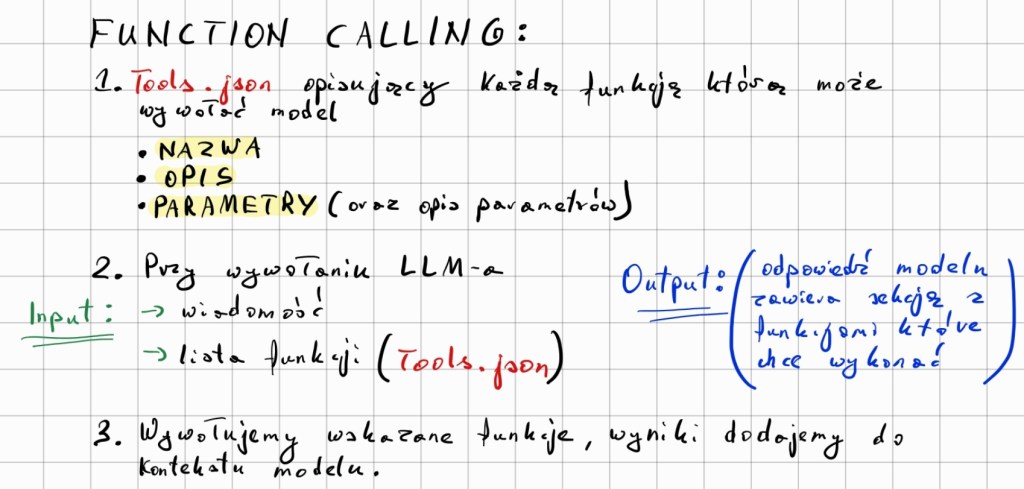 FUNCTION CALLING:
1. Tools.json opisujący każdą funkcję którą może
wywołać model
• NAZWA
• OPIS
• PARAMETRY (oraz opis parametrów)
2. Przy wywołaniu LLM-a
Input: → wiadomość
→ lista funkcji (Tools.json)
Output: (odpowiedź modelu
zawiera sekcję z
funkcjami które
chce wykonać)
3. Wywołujemy wskazane funkcje, wyniki dodajemy do
kontekstu modelu.